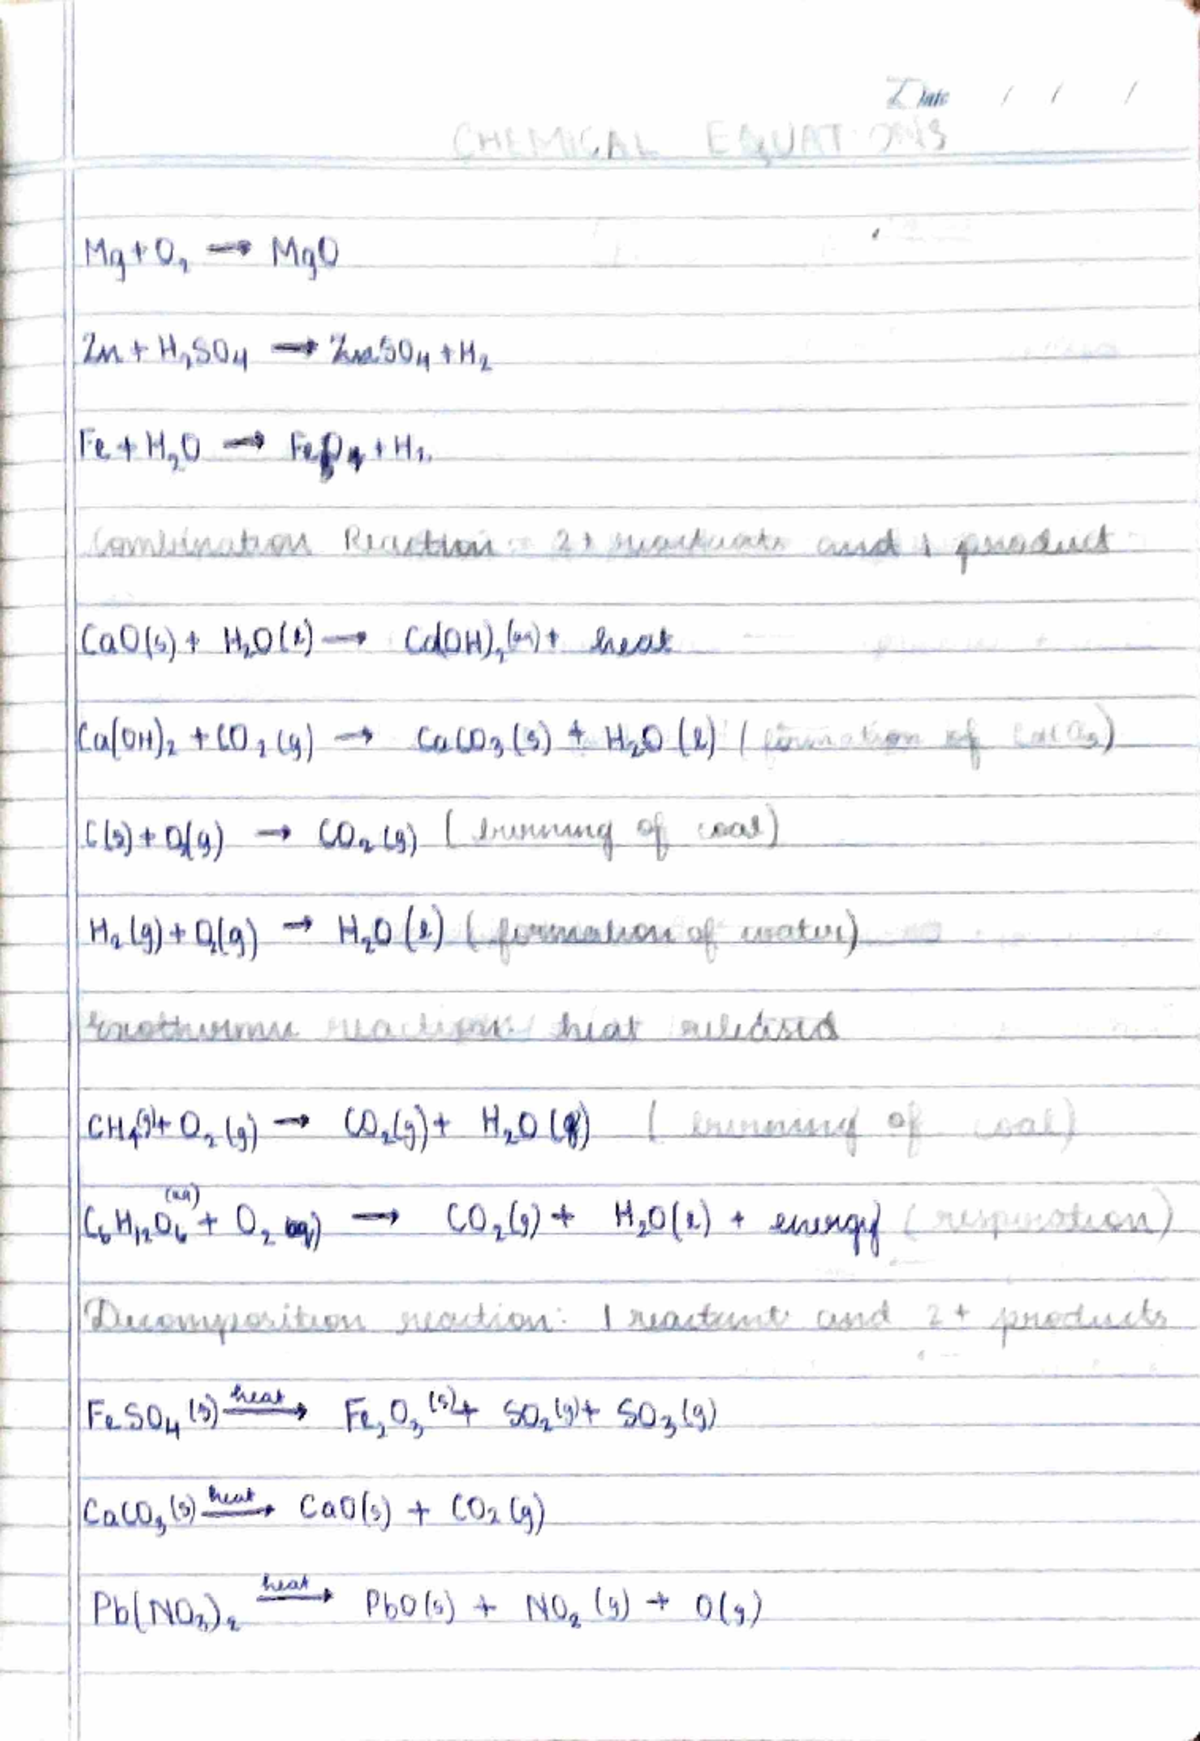 Date / / /
CHEMICAL EQUATIONS
Mg + O₂ → MgO
Zn + H₂SO₄ → ZnSO₄ + H₂
Fe + H₂O → Fe₃O₄ + H₂
Combination Reaction - 2+ reactants and 1 product
CaO(s) + H₂O(l) → Ca(OH)₂(aq) + heat
Ca(OH)₂ + CO₂(g) → CaCO₃(s) + H₂O(l) (formation of CaCO₃)
C(s) + O₂(g) → CO₂(g) (burning of coal)
H₂(g) + O₂(g) → H₂O(l) (formation of water)
Exothermic reaction: heat released
CH₄(g) + O₂(g) → CO₂(g) + H₂O(g) (burning of coal)
C₆H₁₂O₆(aq) + O₂(aq) → CO₂(g) + H₂O(l) + energy (respiration)
Decomposition reaction: 1 reactant and 2+ products
FeSO₄(s) heat→ Fe₂O₃(s) + SO₂(g) + SO₃(g)
CaCO₃(s) heat→ CaO(s) + CO₂(g)
Pb(NO₃)₂ heat→ PbO(s) + NO₂(g) + O(g)